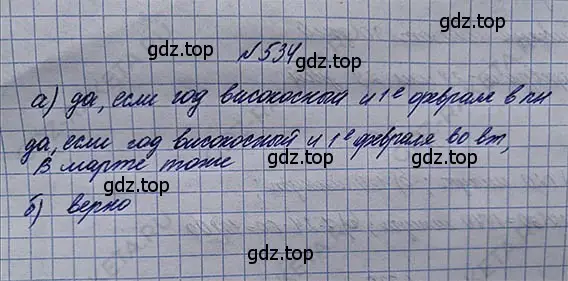 gdz.top
№534
gdz.top
а) да, если год високосный и 1е февраля в пн
да, если год високосный и 1е февраля во вт,
В марте тоже
gdz.top
б) верно
gdz.top
gdz.top